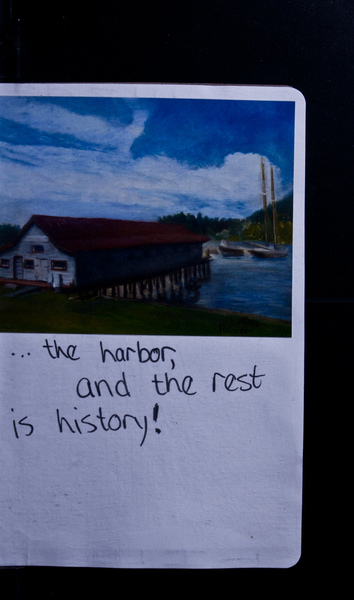 ... the harbor,
and the rest
is history!